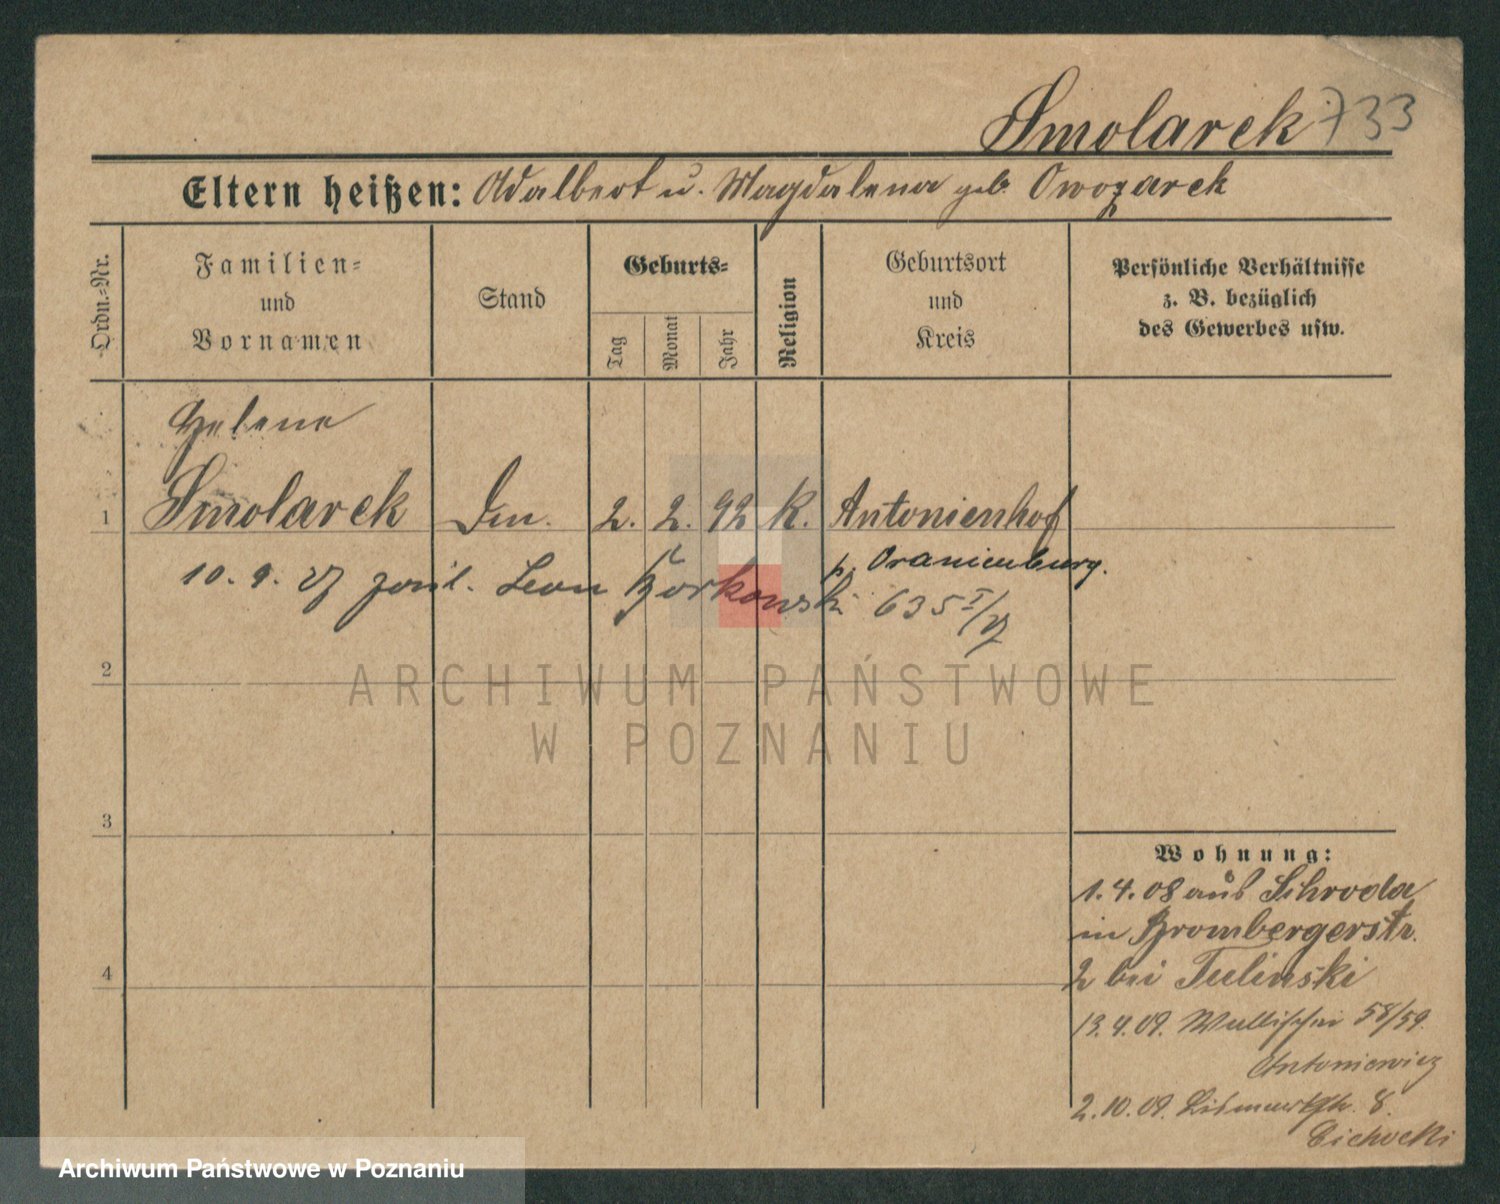 Smolarek 733
Eltern heißen: Adalbert u. Magdalena geb Owozarek
Ordn.-Nr.
Familien-
und
Vornamen
Stand
Geburts-
Tag
Monat
Jahr
Religion
Geburtsort
und
Kreis
Persönliche Verhältnisse
z. B. bezüglich
des Gewerbes usw.
Helene
1 Smolarek Dm. 2. 2. 92 K. Antonienhof
p. Oranienburg.
10. 9. 27 Leon Borkowski 635 I/27
2
ARCHIWUM PAŃSTWOWE
W POZNANIU
3
Wohnung:
1. 4. 08 aus Schroda
in Brombergerstr.
2 bei Tulinski
4
13. 4. 09. Wallischei 58/59.
Antoniewicz
2. 10. 09. Bismarckstr. 8.
Cichocki
Archiwum Państwowe w Poznaniu